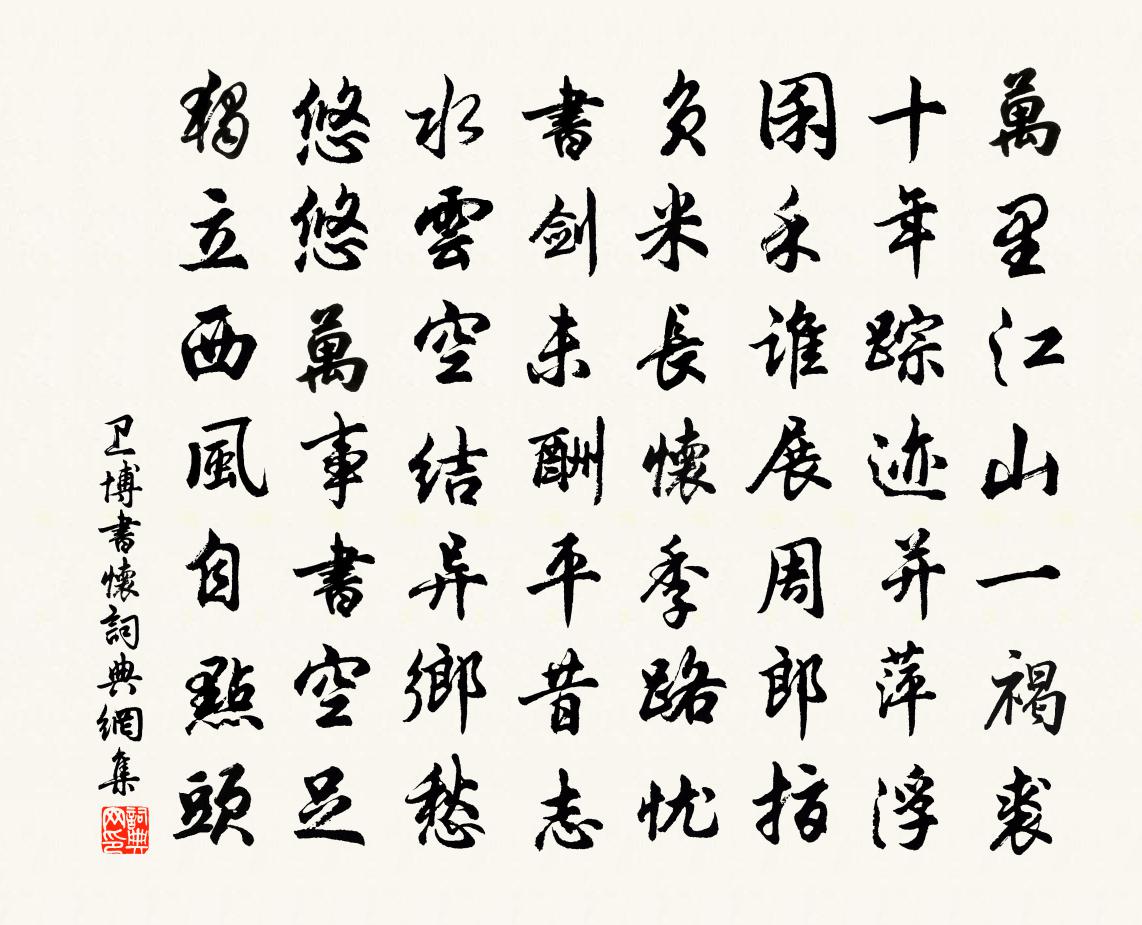 萬里江山一褐裘
十年踪迹并萍浮
囷禾誰展周郎指
负米長懷季路忧
書劍未酬平昔志
水雲空結异鄉愁
悠悠萬事書空足
獨立西風自點頭
卫博書懷詞典網集
詞典网印